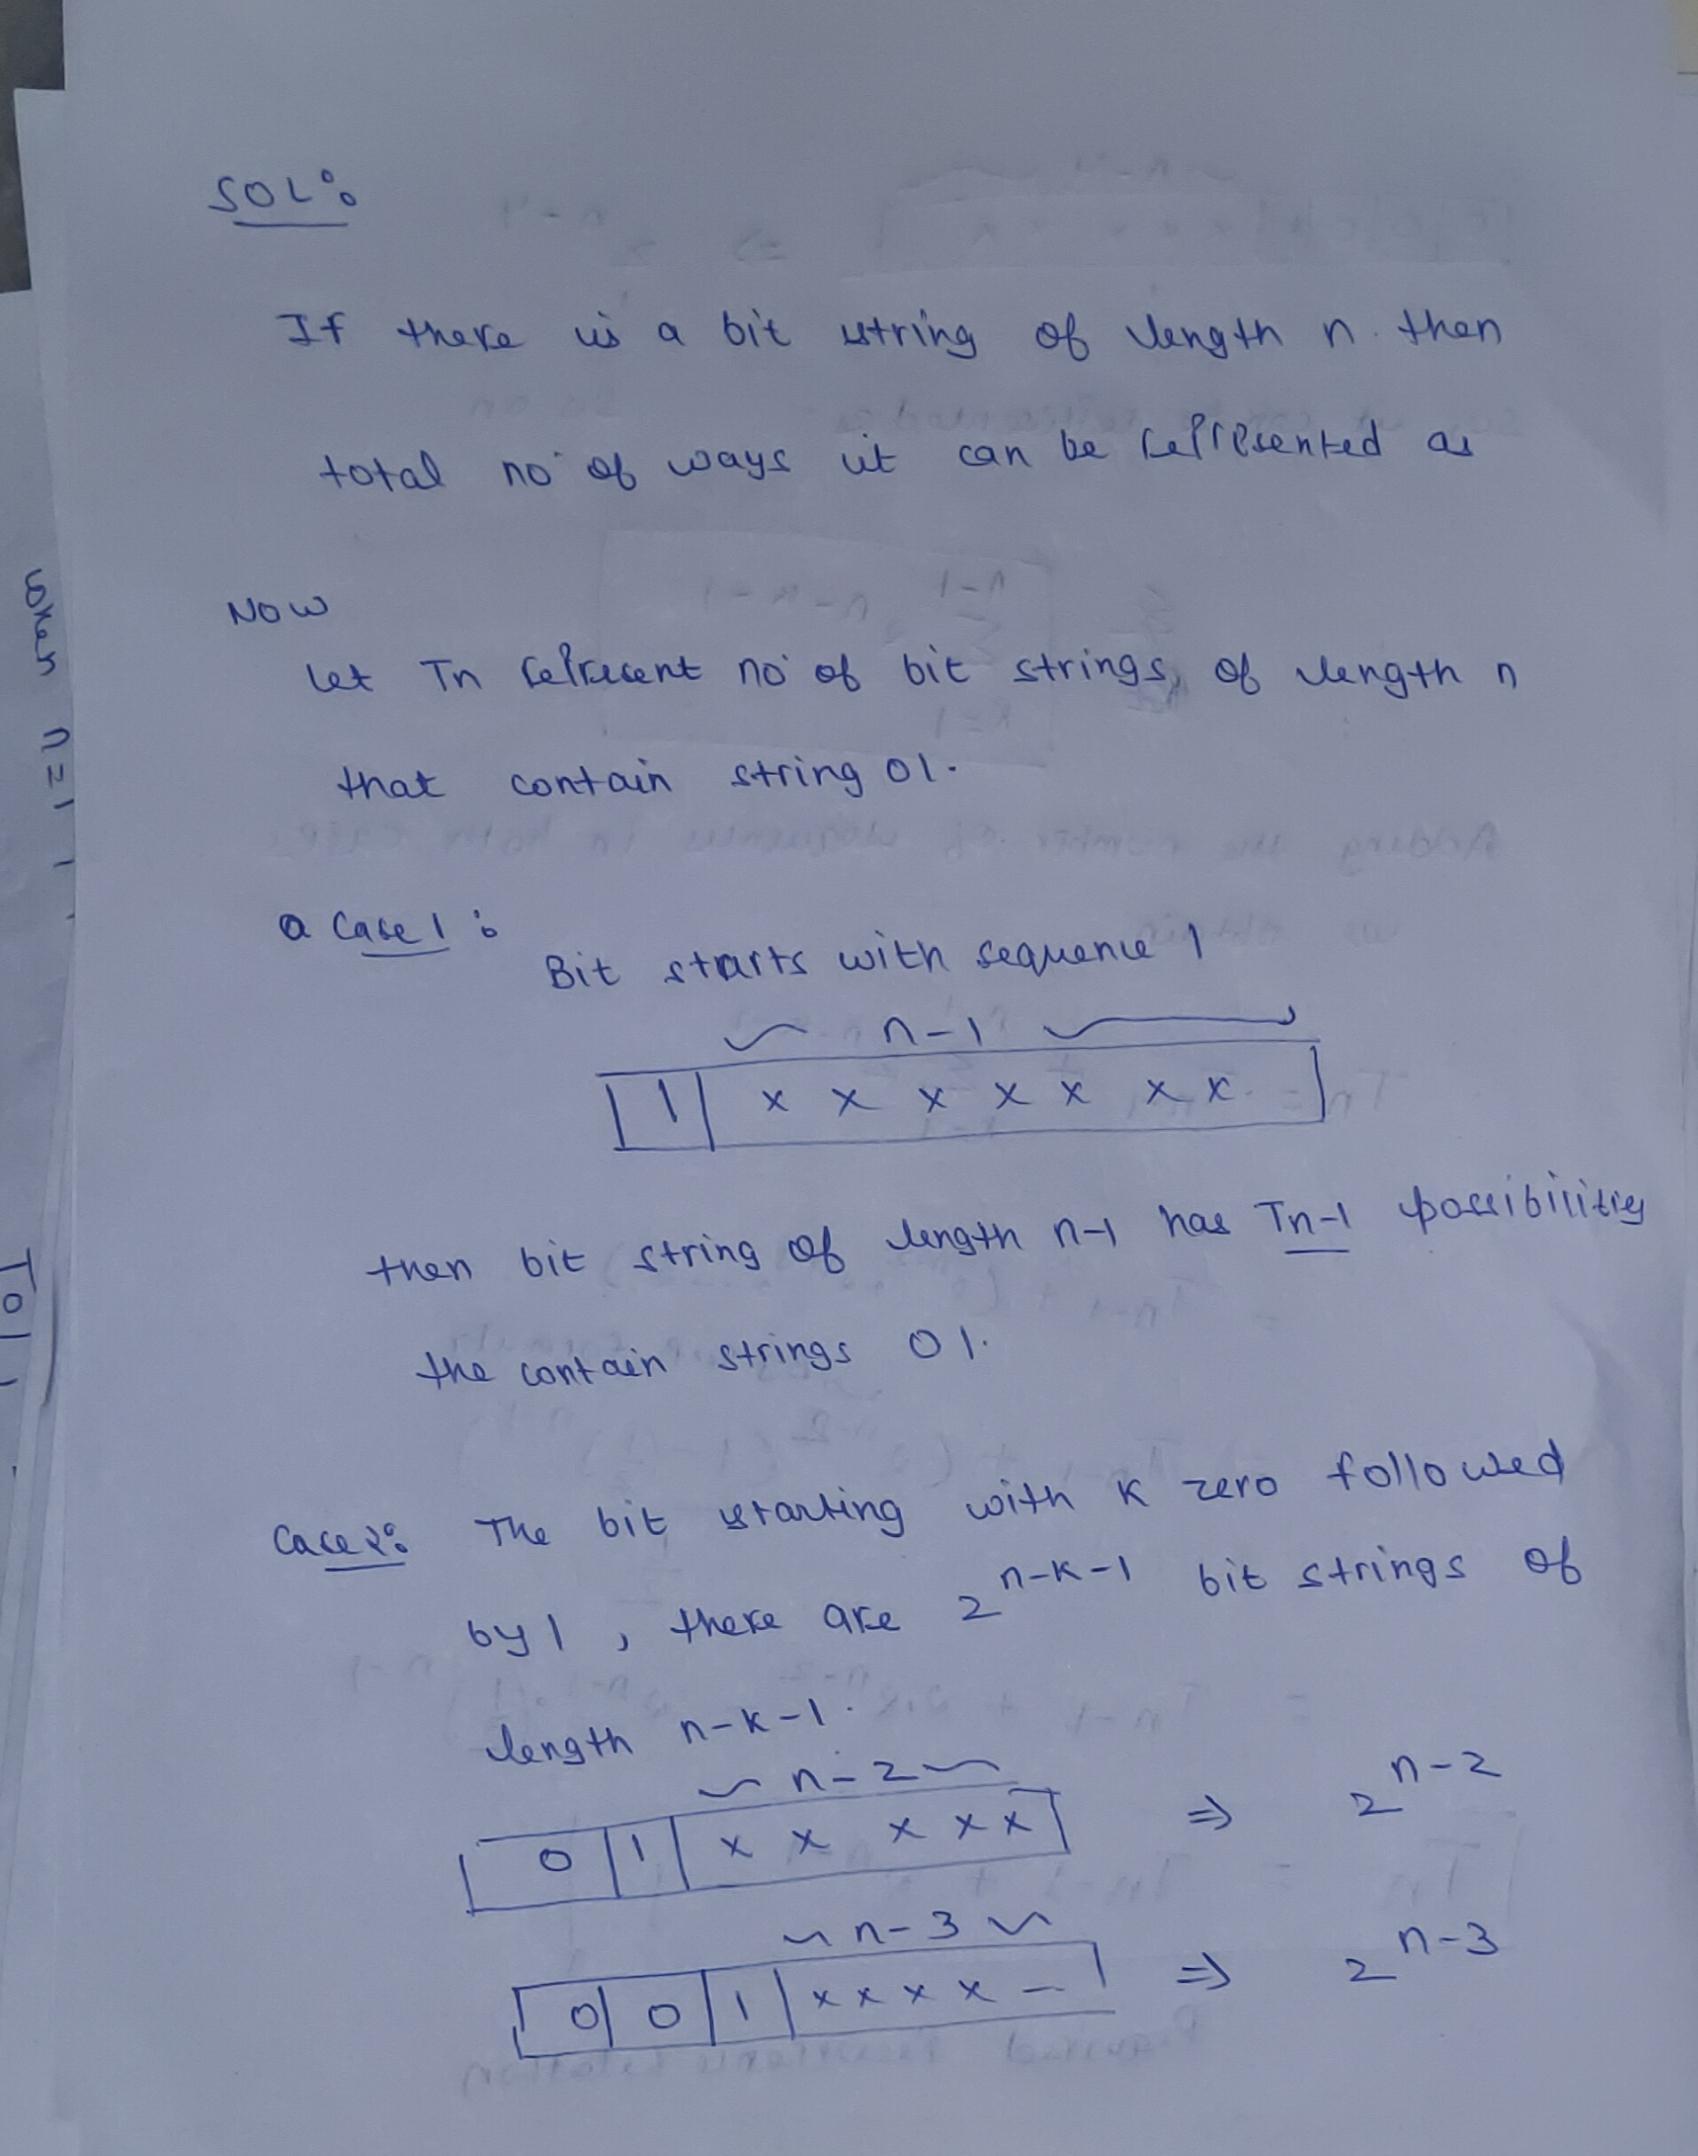 SOL:
If there is a bit string of length n. then
total no of ways it can be represented as
Now
let Tn represent no of bit strings, of length n
that contain string 01.
a Case 1:
Bit starts with sequence 1
n-1
1 x x x x x x x.
then bit string of length n-1 has Tn-1 possibilities
the contain strings 01.
Case 2: The bit starting with K zero followed
by 1, there are 2^n-K-1 bit strings of
length n-K-1.
n-2
0 1 x x x x x ⇒ 2^n-2
n-3
0 0 1 x x x x - ⇒ 2^n-3